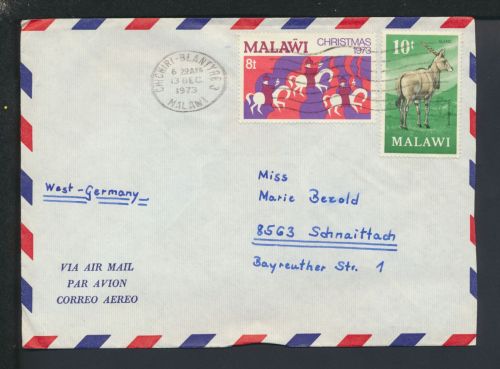 CHICHIRI-BLANTYRE 3
6 29AM
13 DEC
1973
MALAWI
MALAWI CHRISTMAS 1973
8t
10t
ELAND
MALAWI
Miss
Marie Bezold
8563 Schnaittach
Bayreuther Str. 1
West-Germany
VIA AIR MAIL
PAR AVION
CORREO AEREO